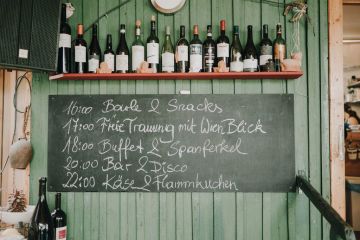 16:00 Bowle & Snacks
17:00 Freie Trauung mit Wien Blick
18:00 Buffet & Spanferkel
20:00 Bar & Disco
22:00 Käse & Flammkuchen